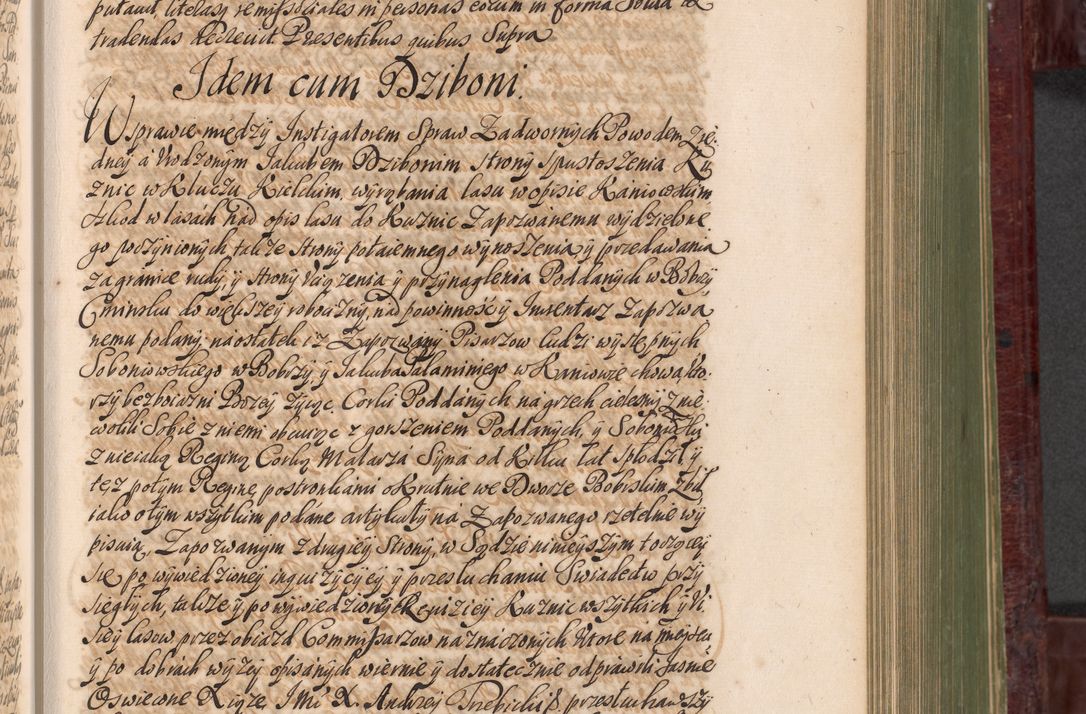 putavit, literas remissoriales in personas eorum in forma solita et
tradendas decrevit. Presentibus quibus supra
Idem cum Dziboni.
W sprawie między Instigatorem Spraw Zadwornych Powodem z ie-
dney a Urodzonym Jakubem Dzibonim strony spustoszenia Ku
znic w Kluczu Kieleckim, wyrąbania lasu w opisie Kaniowskim
szkod w lasach nad opis lasa do Kuznic Zapozwanemu wydzielone
go poczynionych, także strony potaiemnego wynoszenia y przedawania
za granice rudy, y strony uciązenia y przynaglenia Poddanych w Bobrzy
Cminsku do większey robocizny, nad powinność y Inwentarz Zapozwa
nemu podany, naostatek iż Zapozwany Pisarzow ludzi występnych
Soboniowskiego w Bobrzy y Jakuba Salaminiego w Kaniowie chowa, kto
rzy bez boiazni Bozey zyiąc, Corki Poddanych na grzech cielesny znie
wolili sobie z niemi obcuiąc z gorszeniem Poddanych, y Soboniowski
z nieiaką Reginą Corką Malarza Syna od kilku lat spłodził, y
tęz potym Reginę postronkami okrutnie we Dworze Bobrskim zbił
iako o tym wszytkim podane artykuły na Zapozwanego rzetelnie wy
pisuią, Zapozwanym z drugiey strony, w Sądzie ninieyszym toczącey
się po wywiedzioney inquizycyey y przesłuchaniu Swiadectw przy
sięgłych, także y po wywiedzioney Rewiziey Kuznic wszytkich y Wi
siey lasow, przez obiazd Commissarzow naznaczonych, ktore na mieyscu
y po dobrach wyzey opisanych wiernie y dostatecznie odprawili, Jasnie
Oswiecone Xiąze Jmć X. Andrzey Trzebicki B. przesłuchawszy